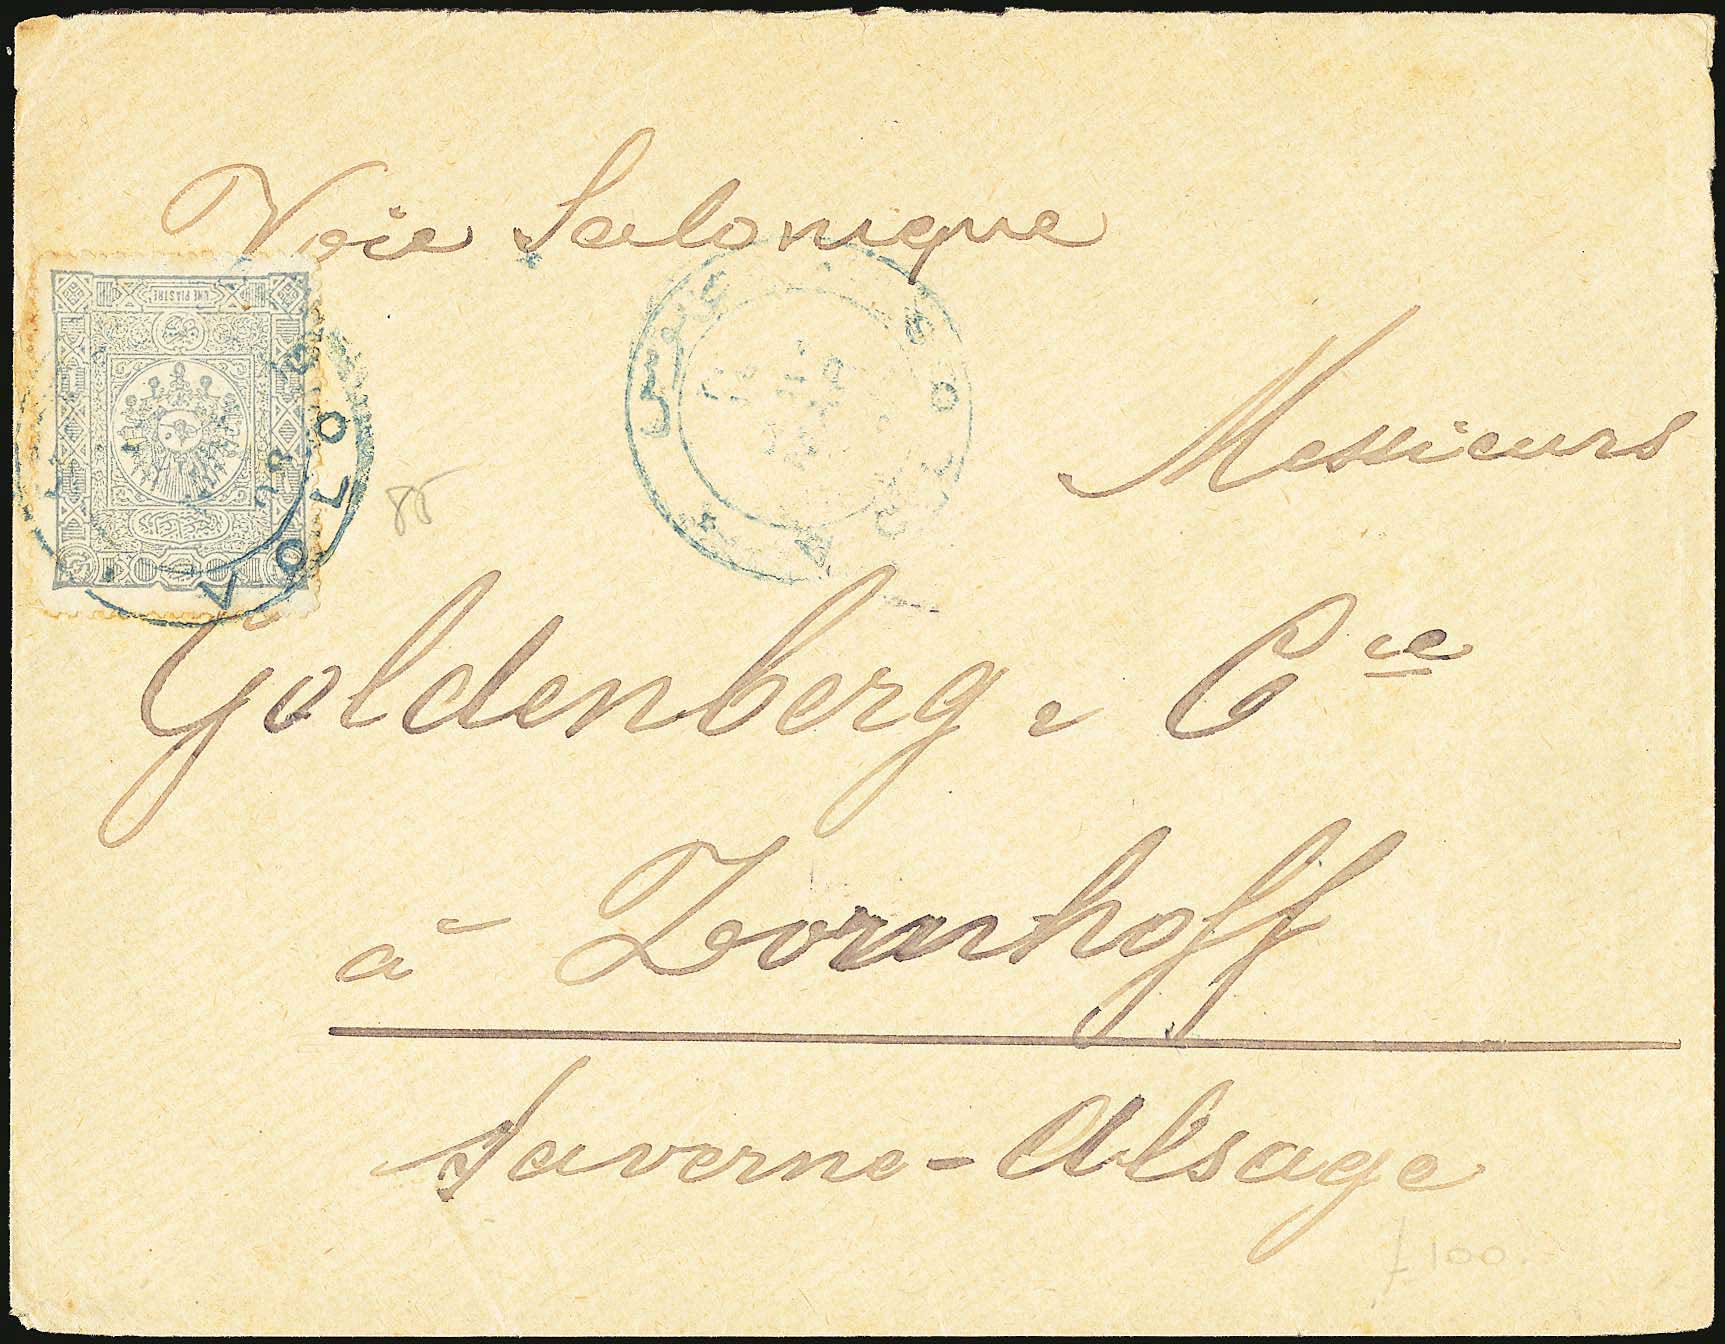 Voie Salonique
UNE PIASTRE
VOLO
85
Messieurs
Goldenberg & Cie
à Zornhoff
Saverne-Alsage
£100